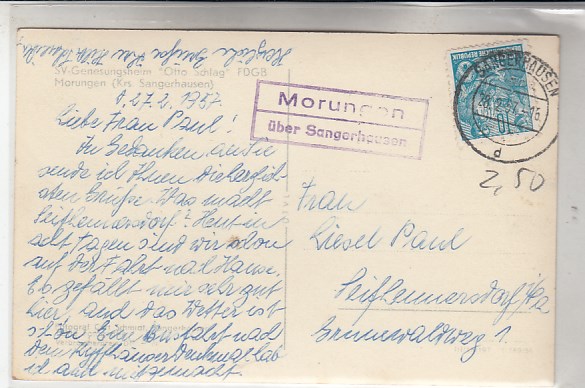 Herzliche Grüße Ihre
SV-Genesungsheim "Otto Schlag" FDGB
Morungen (Krs. Sangerhausen)
27.2.1957.
Liebe Frau Paul!
In Gedanken an Sie
sende ich Ihnen die herzlich-
sten Grüße. Was macht
Seifhennersdorf? Heut in
acht Tagen sind wir schon
auf der Fahrt nach Hause.
Es gefällt mir sehr gut
hier, und das Wetter ist
schön. Eine Busfahrt nach
dem Kyffhäuser Denkmal hab
ich auch mitgemacht.
Morungen
über Sangerhausen
SANGERHAUSEN
d
2,50
Frau
Liesel Paul
Seifhennersdorf
Grünewaldweg 1.